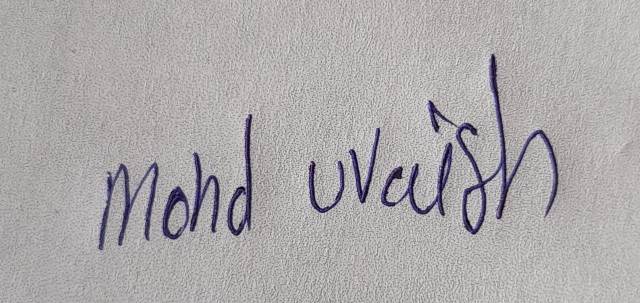 Mohd uvaish